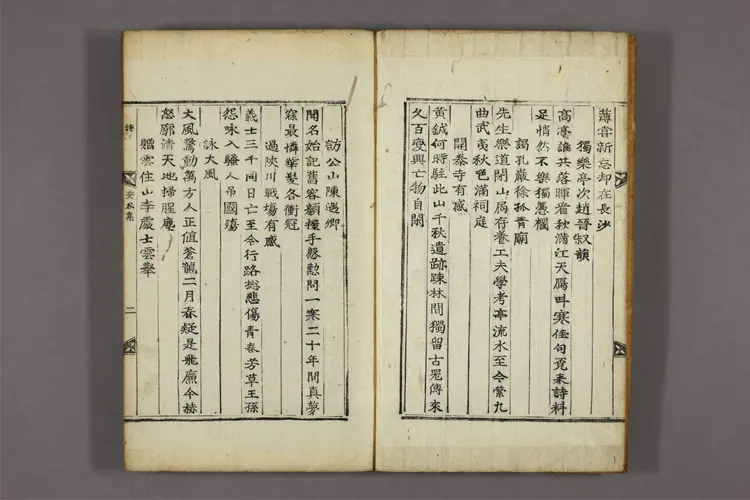 薄雲新忘却在長沙
獨樂亭次趙晉叔韻
高臺誰共落暉看秋滿江天鴈叫寒佳句覓來詩料
足悄然不樂獨憑欄
謁孔巖徐孤青廟
先生樂道閉山扃存養工夫學考亭流水至今縈九
曲武夷秋色滿祠庭
開泰寺有感
黃鉞何時駐此山千秋遺跡踈林間獨留古器傳來
久百變興亡物自閑
訪公山陳遇卿
聞名始記舊容顔握手慇懃問一寒二十年間眞夢
寐最憐華髮各衝冠
過陜川戰場有感
義士三千同日亡至今行路摠悲傷青春芳草王孫
怨咏入騷人吊國殤
詠大風
大風驚動萬方人正値蒼龍二月春疑是飛廉今赫
怒廓清天地掃腥塵
贈雲住山李處士雲擧
詩
安村集
二